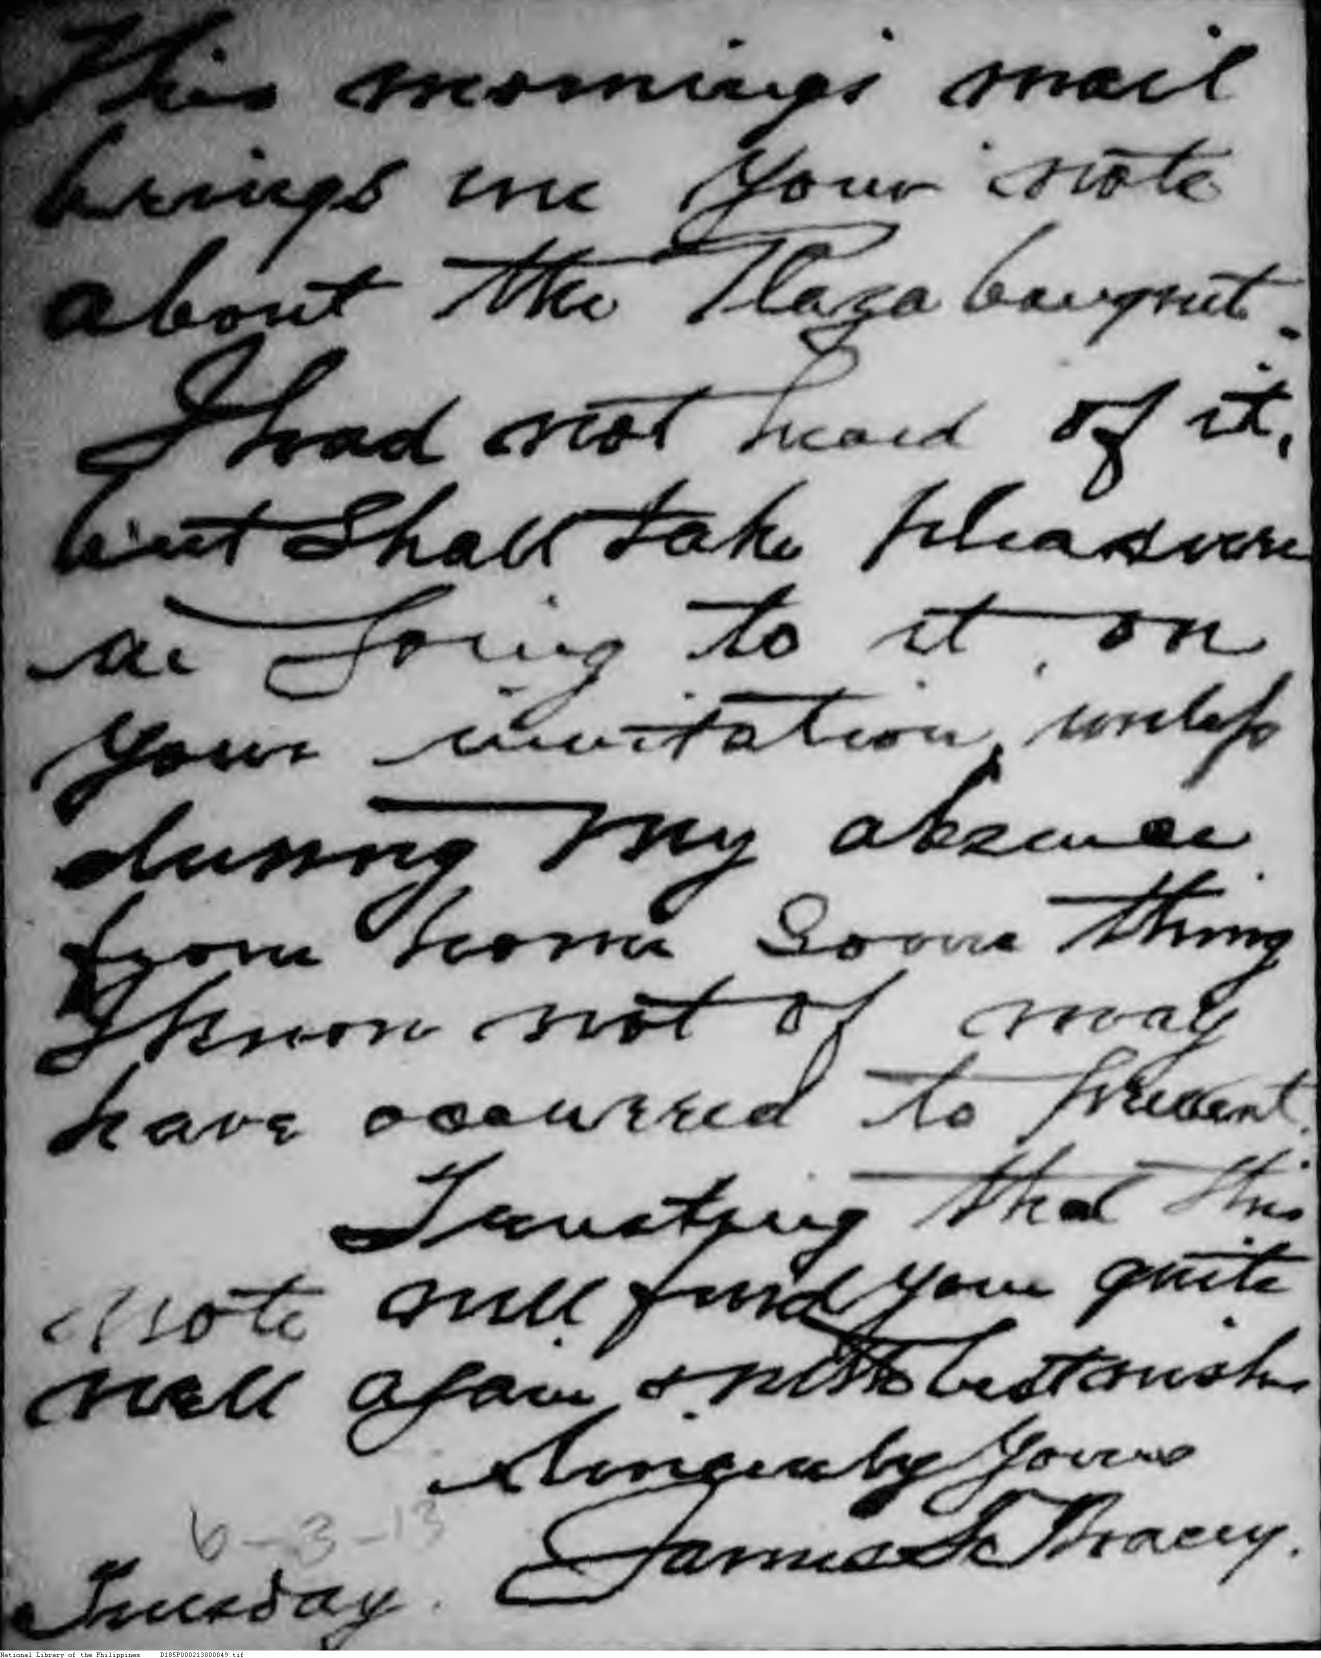 This mornings mail
brings me your note
about the Plaza banquet.
I had not heard of it,
but shall take pleasure
in going to it on
your invitation, unless
during my absence
from home some thing
I know not of may
have occurred to prevent.
Trusting that this
note will find you quite
well again & with best wishes
Sincerely Yours
James S. Tracey.
6-3-13
Tuesday.
National Library of the Philippines D185P000213800049.tif